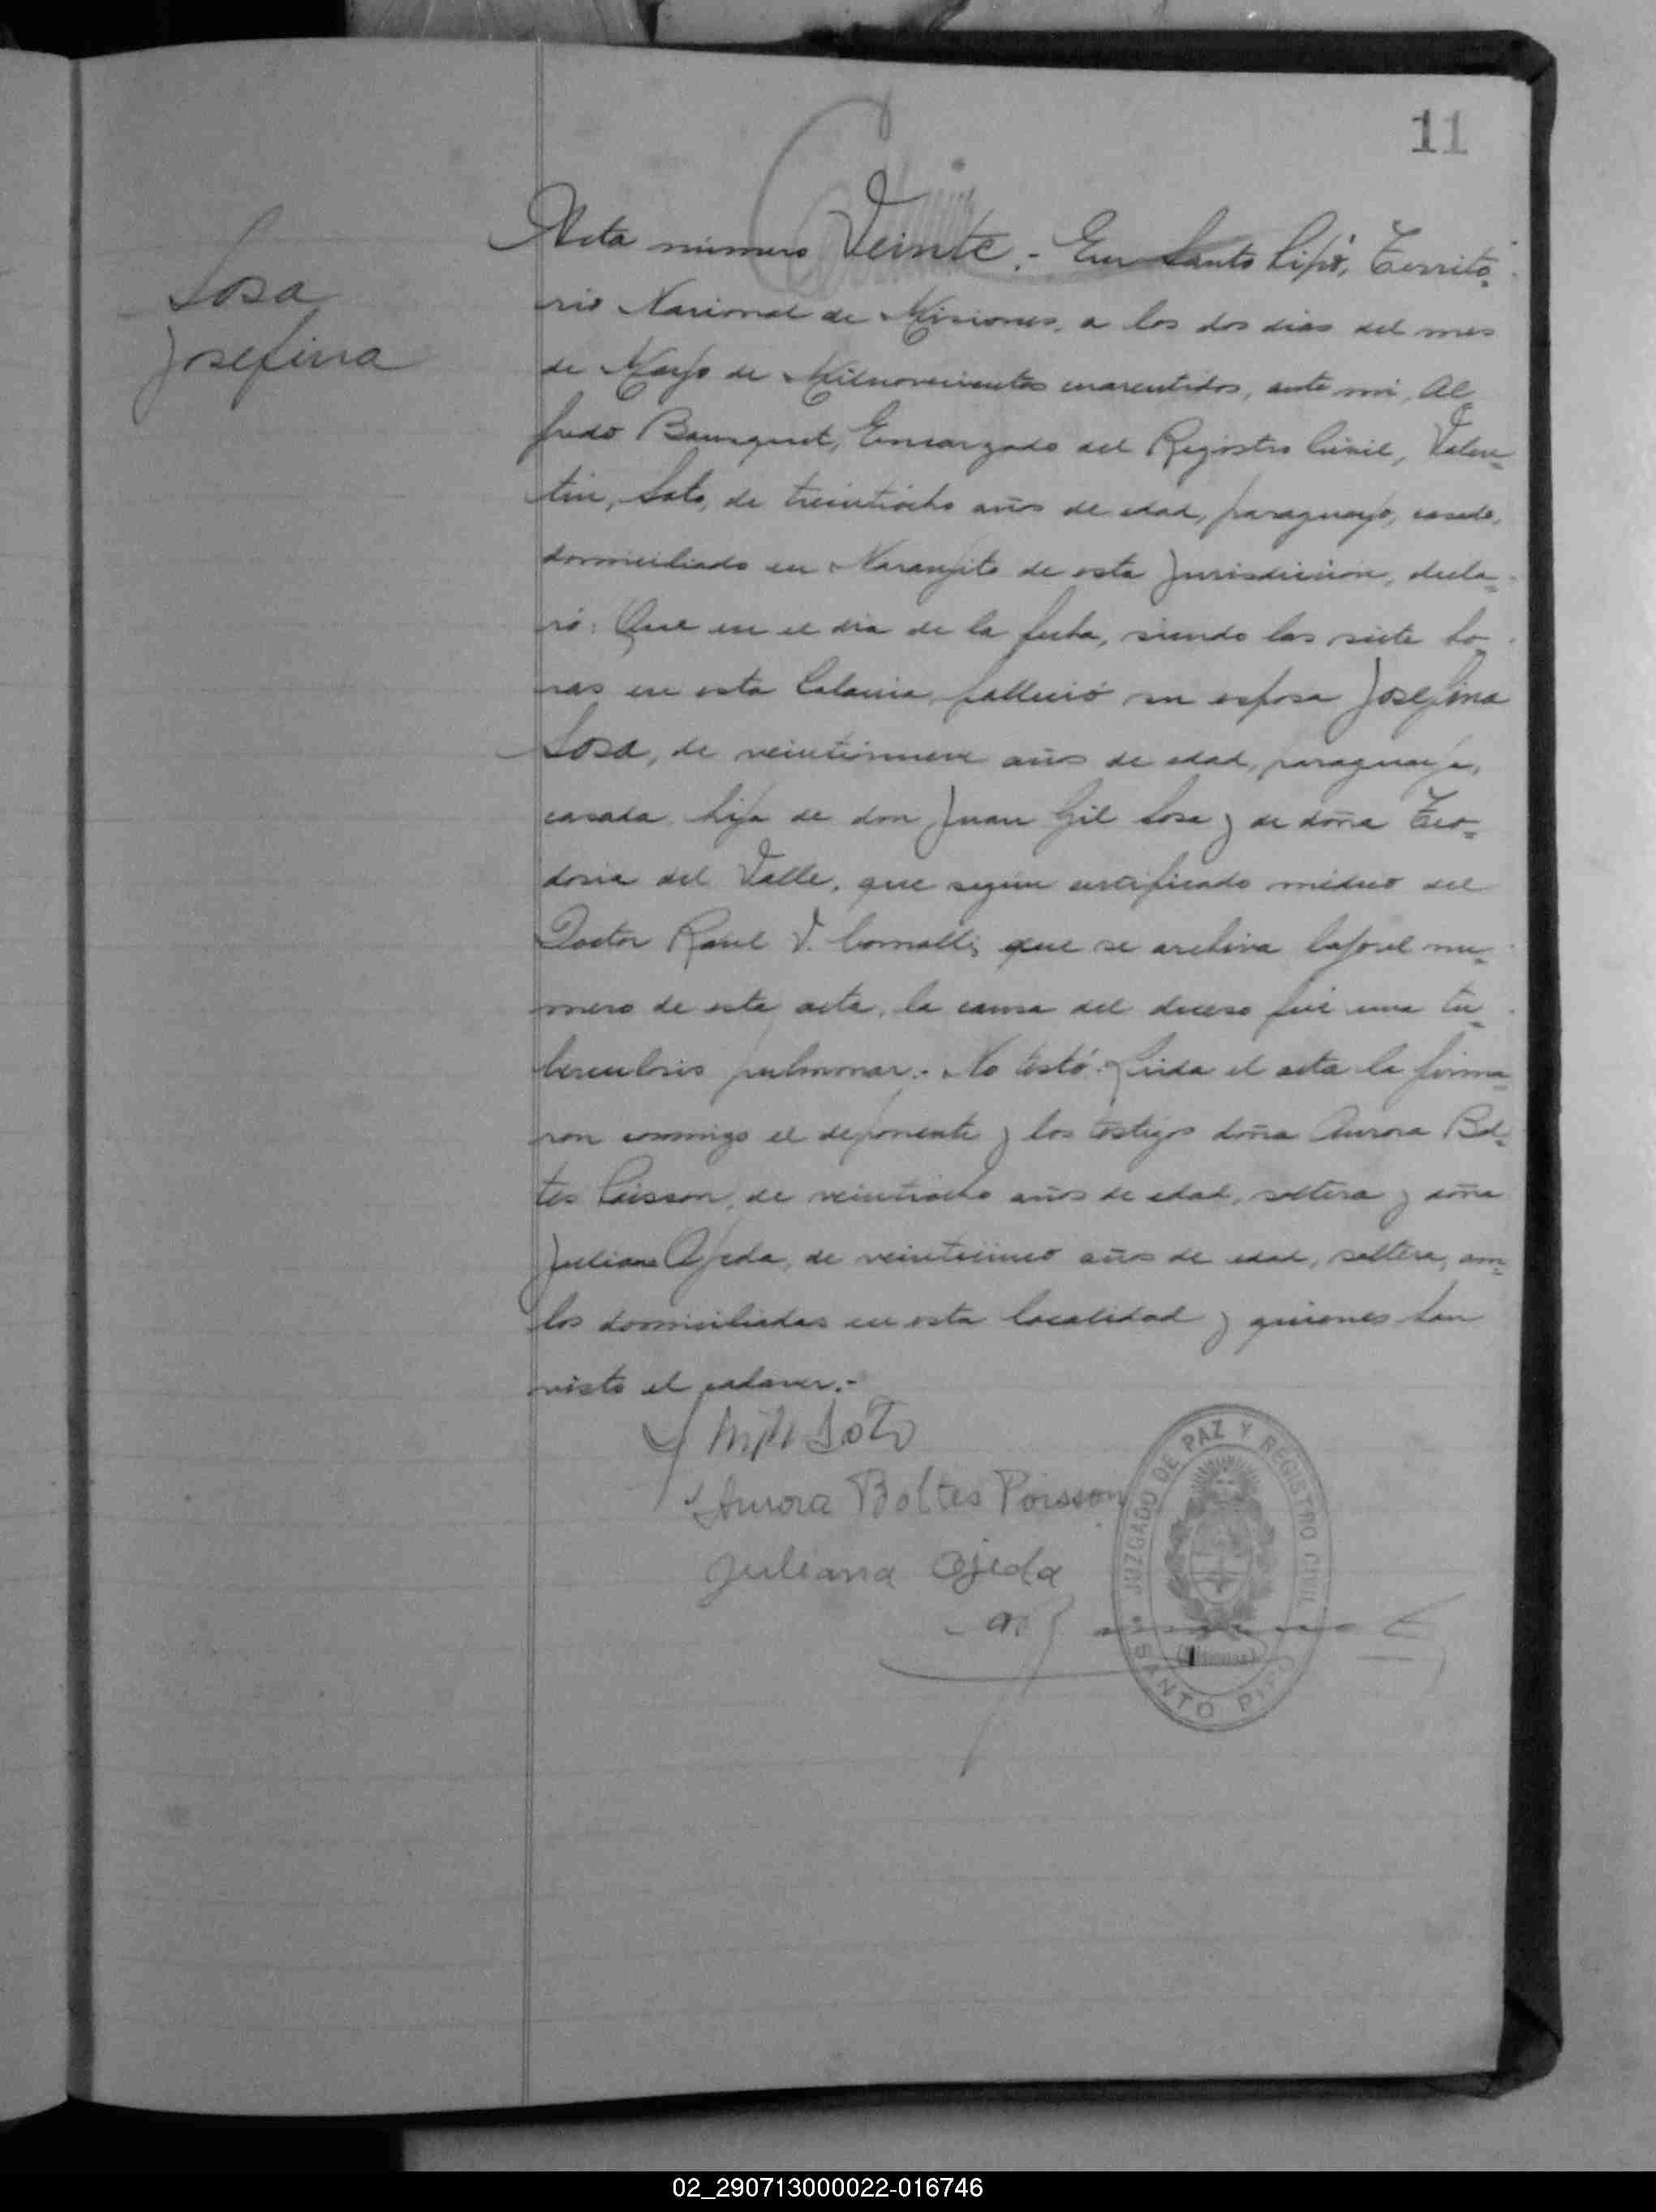 11
Sosa
Josefina
Acta número Veinte.- En Santo Pipó, Territo=
rio Nacional de Misiones, a los dos dias del mes
de Mayo de Milnovecientos cuarentidos, ante mi, Al
fredo Encargado del Registro Civil, Valen=
tin, Soto, de treintiocho años de edad, paraguayo, casado,
domiciliado en Naranjito de esta Jurisdicción, decla=
ró: Que en el dia de la fecha, siendo las siete ho
ras en esta Colonia, falleció su esposa Josefina
Sosa, de veintinueve años de edad, paraguaya,
casada, hija de don Juan Gil Sosa y de doña Teo=
dosia del Valle, que según certificado médico del
Doctor Raul V. que se archiva bajo el nu=
mero de esta acta, la causa del deceso fué una tu=
berculosis pulmonar.- No testó. Leida el acta la firma=
ron conmigo el deponente y los testigos doña Aurora Bol=
tes Poisson, de veintiocho años de edad, soltera y doña
Juliana Ojeda, de veinticinco años de edad, soltera, am=
bos domiciliadas en esta localidad y quienes han
visto el cadaver.-
Soto
Aurora Boltes Poisson
Juliana Ojeda
JUZGADO DE PAZ Y REGISTRO CIVIL
(Misiones)
SANTO PIPÓ
02_290713000022-016746